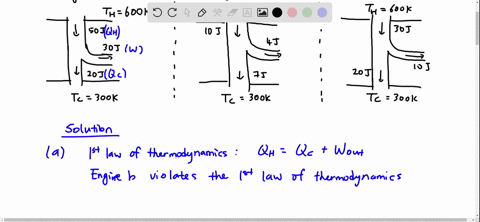 T_H = 600K
50J (Q_H)
30J (W)
20J (Q_C)
T_C = 300K
10J
4J
7J
T_C = 300K
T_H = 600K
30J
10J
20J
T_C = 300K
Solution
(a) 1st law of thermodynamics : Q_H = Q_C + W_out
Engine b violates the 1st law of thermodynamics